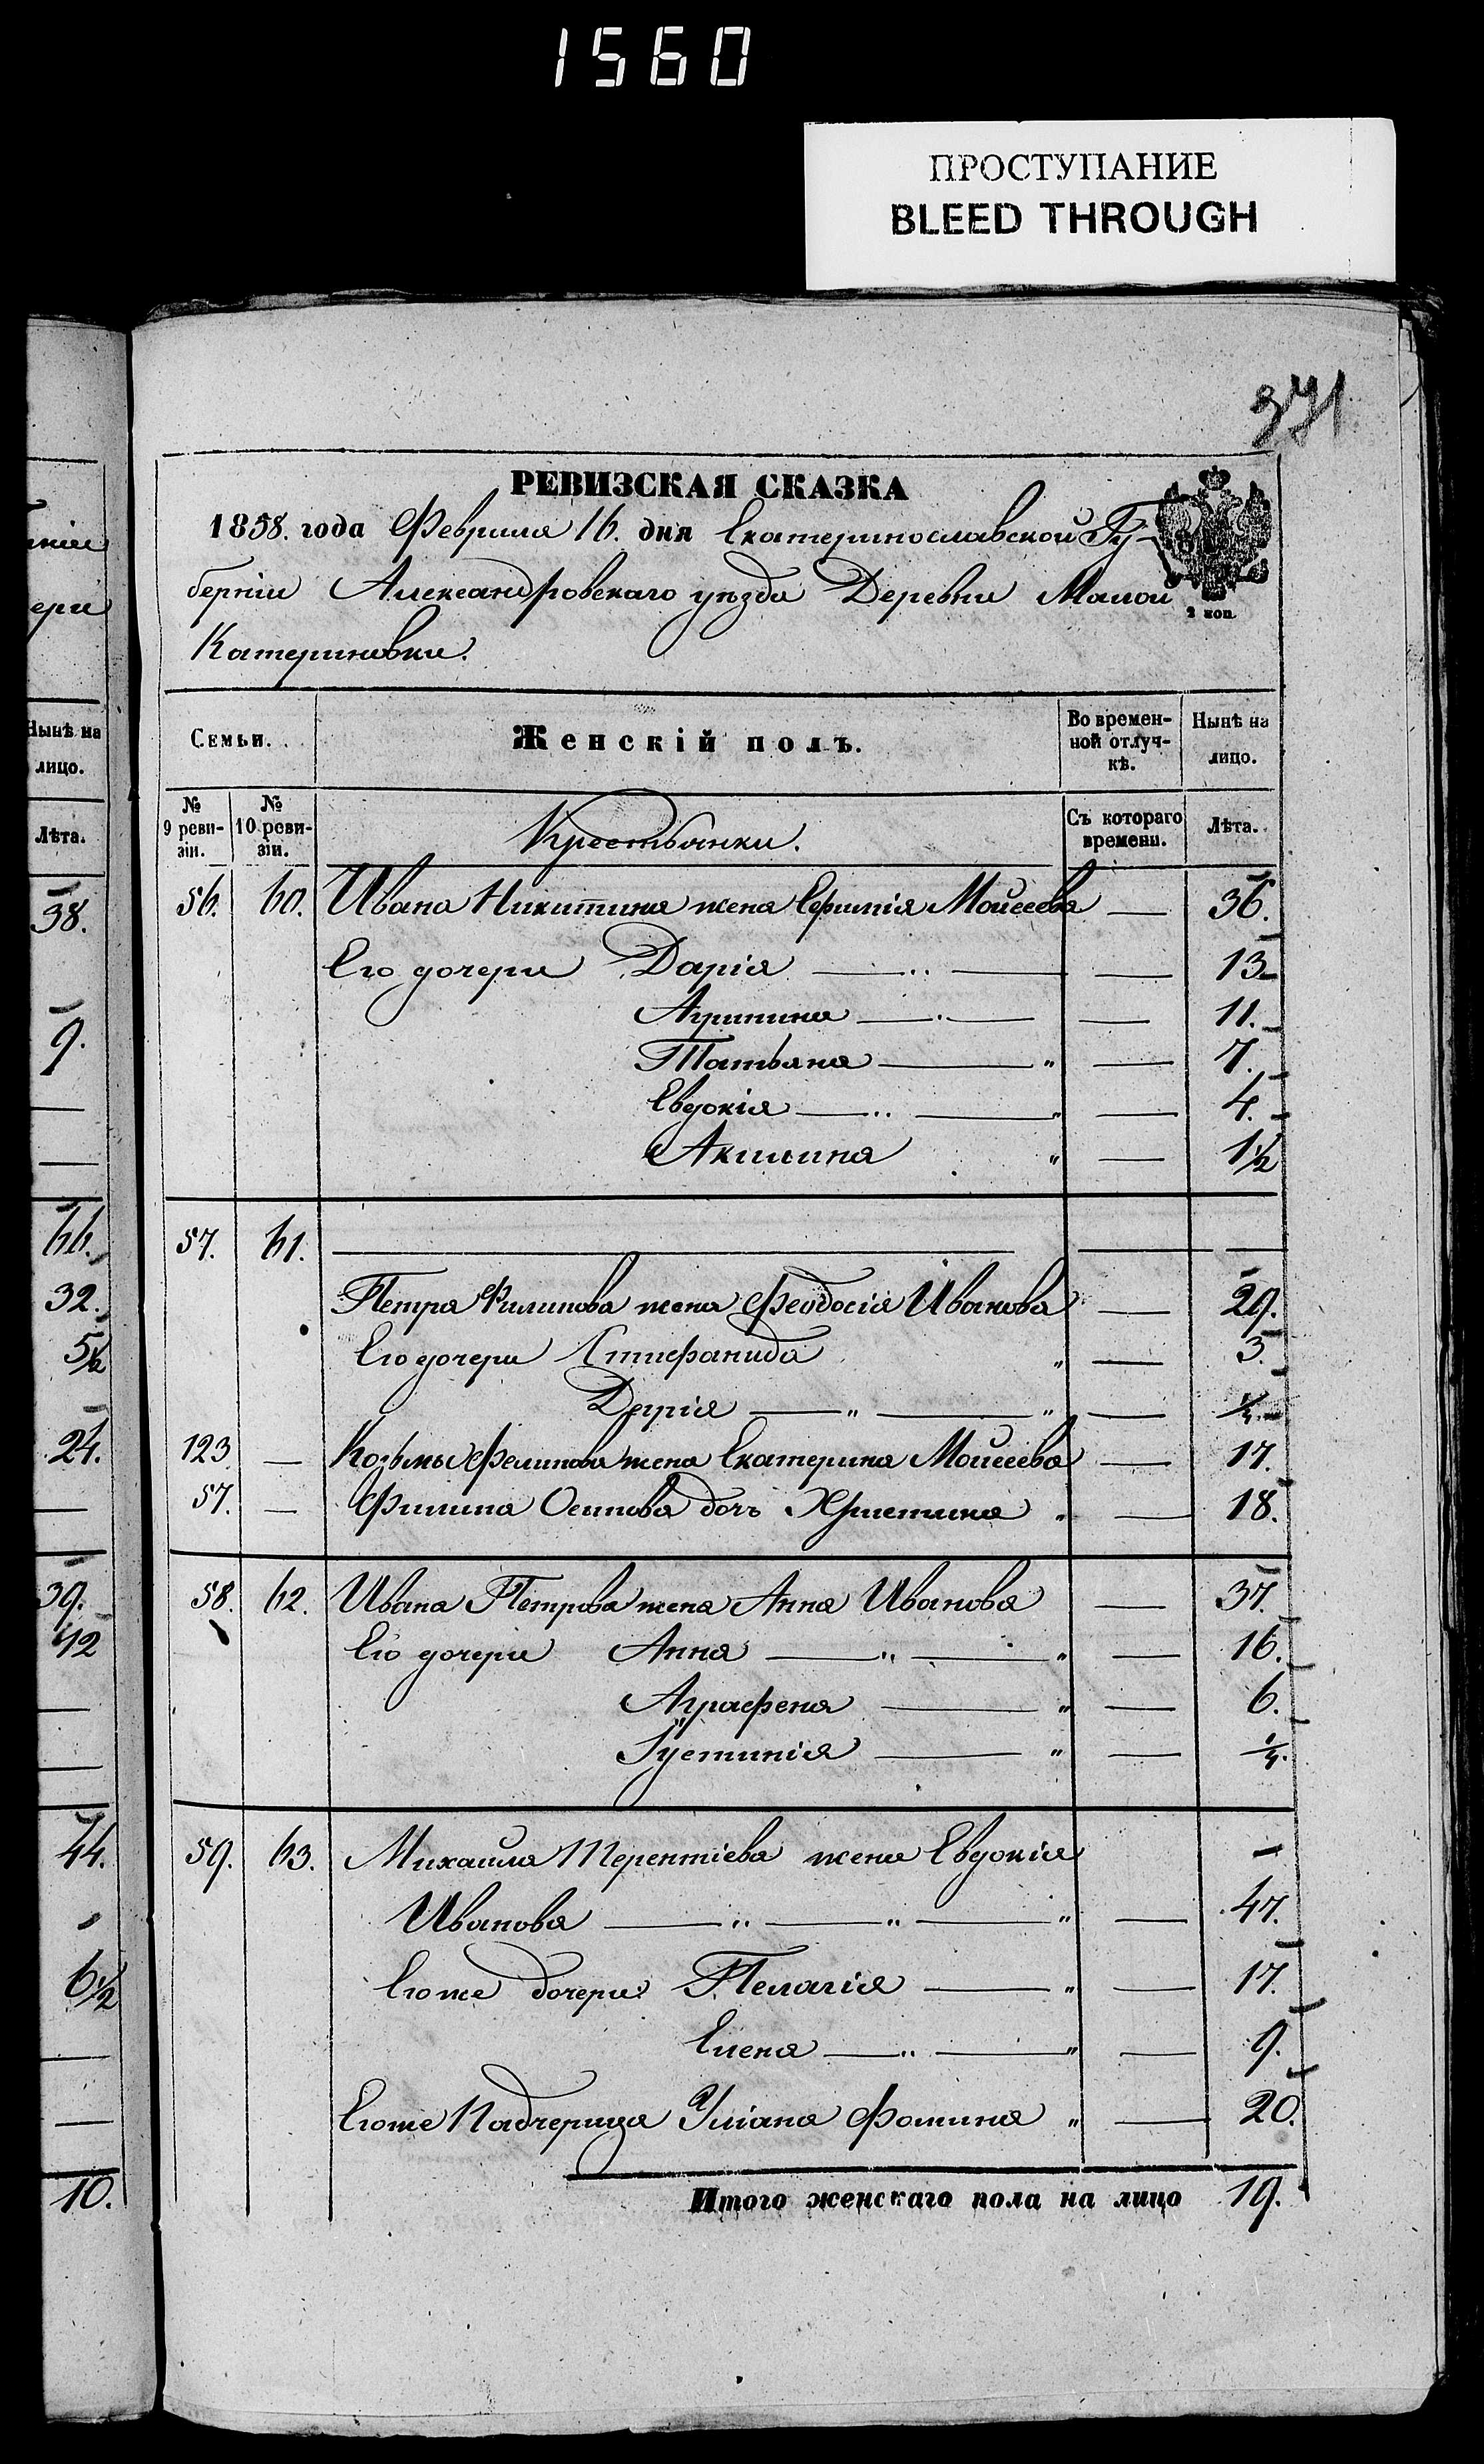 1560
ПРОСТУПАНИЕ
BLEED THROUGH
371
РЕВИЗСКАЯ СКАЗКА
1858. года Февраля 16. дня Екатеринославской Гу-
берніи Александровскаго уѣзда Деревни Малой
2 коп.
Катериновки.
Семьи. Женскій полъ. Во времен-ной отлуч-кѣ. Нынѣ на лицо.
№ 9 реви-зіи. № 10 реви-зіи. Крестьянки. Съ котораго времени. Лѣта.
56. 60. Ивана Никитина жена Моисеева — 36.
Его дочери Дарія — 13
Агрипина — 11.
Татьяна — 7.
Евдокія — 4.
Акилина — 1½
57. 61. —
Петра Филипова жена Феодосія Иванова — 29.
Его дочери Стифанида — 3.
Дарія —
123. — Козьмы Филипова жена Екатерина Моисеева — 17.
57. — Филипа Осипова дочь Христина — 18.
58. 62. Ивана Петрова жена Анна Иванова — 37.
Его дочери Анна — 16.
Аграфена — 6.
Іустинія —
59. 63. Михаила Терентіева жена Евдокія
Иванова — 47.
Егоже дочери Пелагія — 17.
Елена — 9.
Егоже Падчерица Уліана Фомина — 20.
Итого женскаго пола на лицо 19.
ніи
ери
Нынѣ на
лицо.
Лѣта.
38.
9.
66.
32.
5½
24.
39.
12
44.
6½
10.